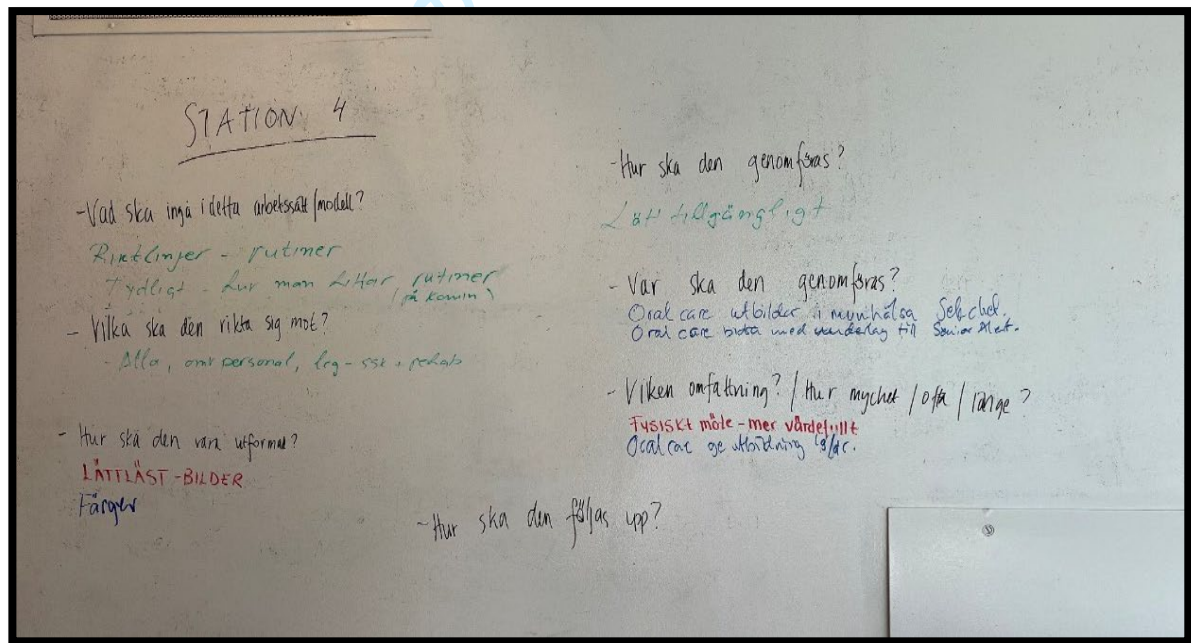 STATION 4
- Vad ska ingå i detta arbetssätt/modell?
Riktlinjer - rutiner
Tydligt - hur man hittar rutiner
(på komin)
- Vilka ska den rikta sig mot?
- Alla, omv personal, leg - ssk + rehab
- Hur ska den vara utformad?
LÄTTLÄST - BILDER
Färger
- Hur ska den genomföras?
Lätt tillgängligt
- Var ska den genomföras?
Oral care utbildar i munhälsa
Oral care bidra med underlag till Senior Alert.
- Vilken omfattning? / Hur mycket / ofta / länge?
FYSISKT möte - mer värdefullt
Oral care ge utbildning
- Hur ska den följas upp?